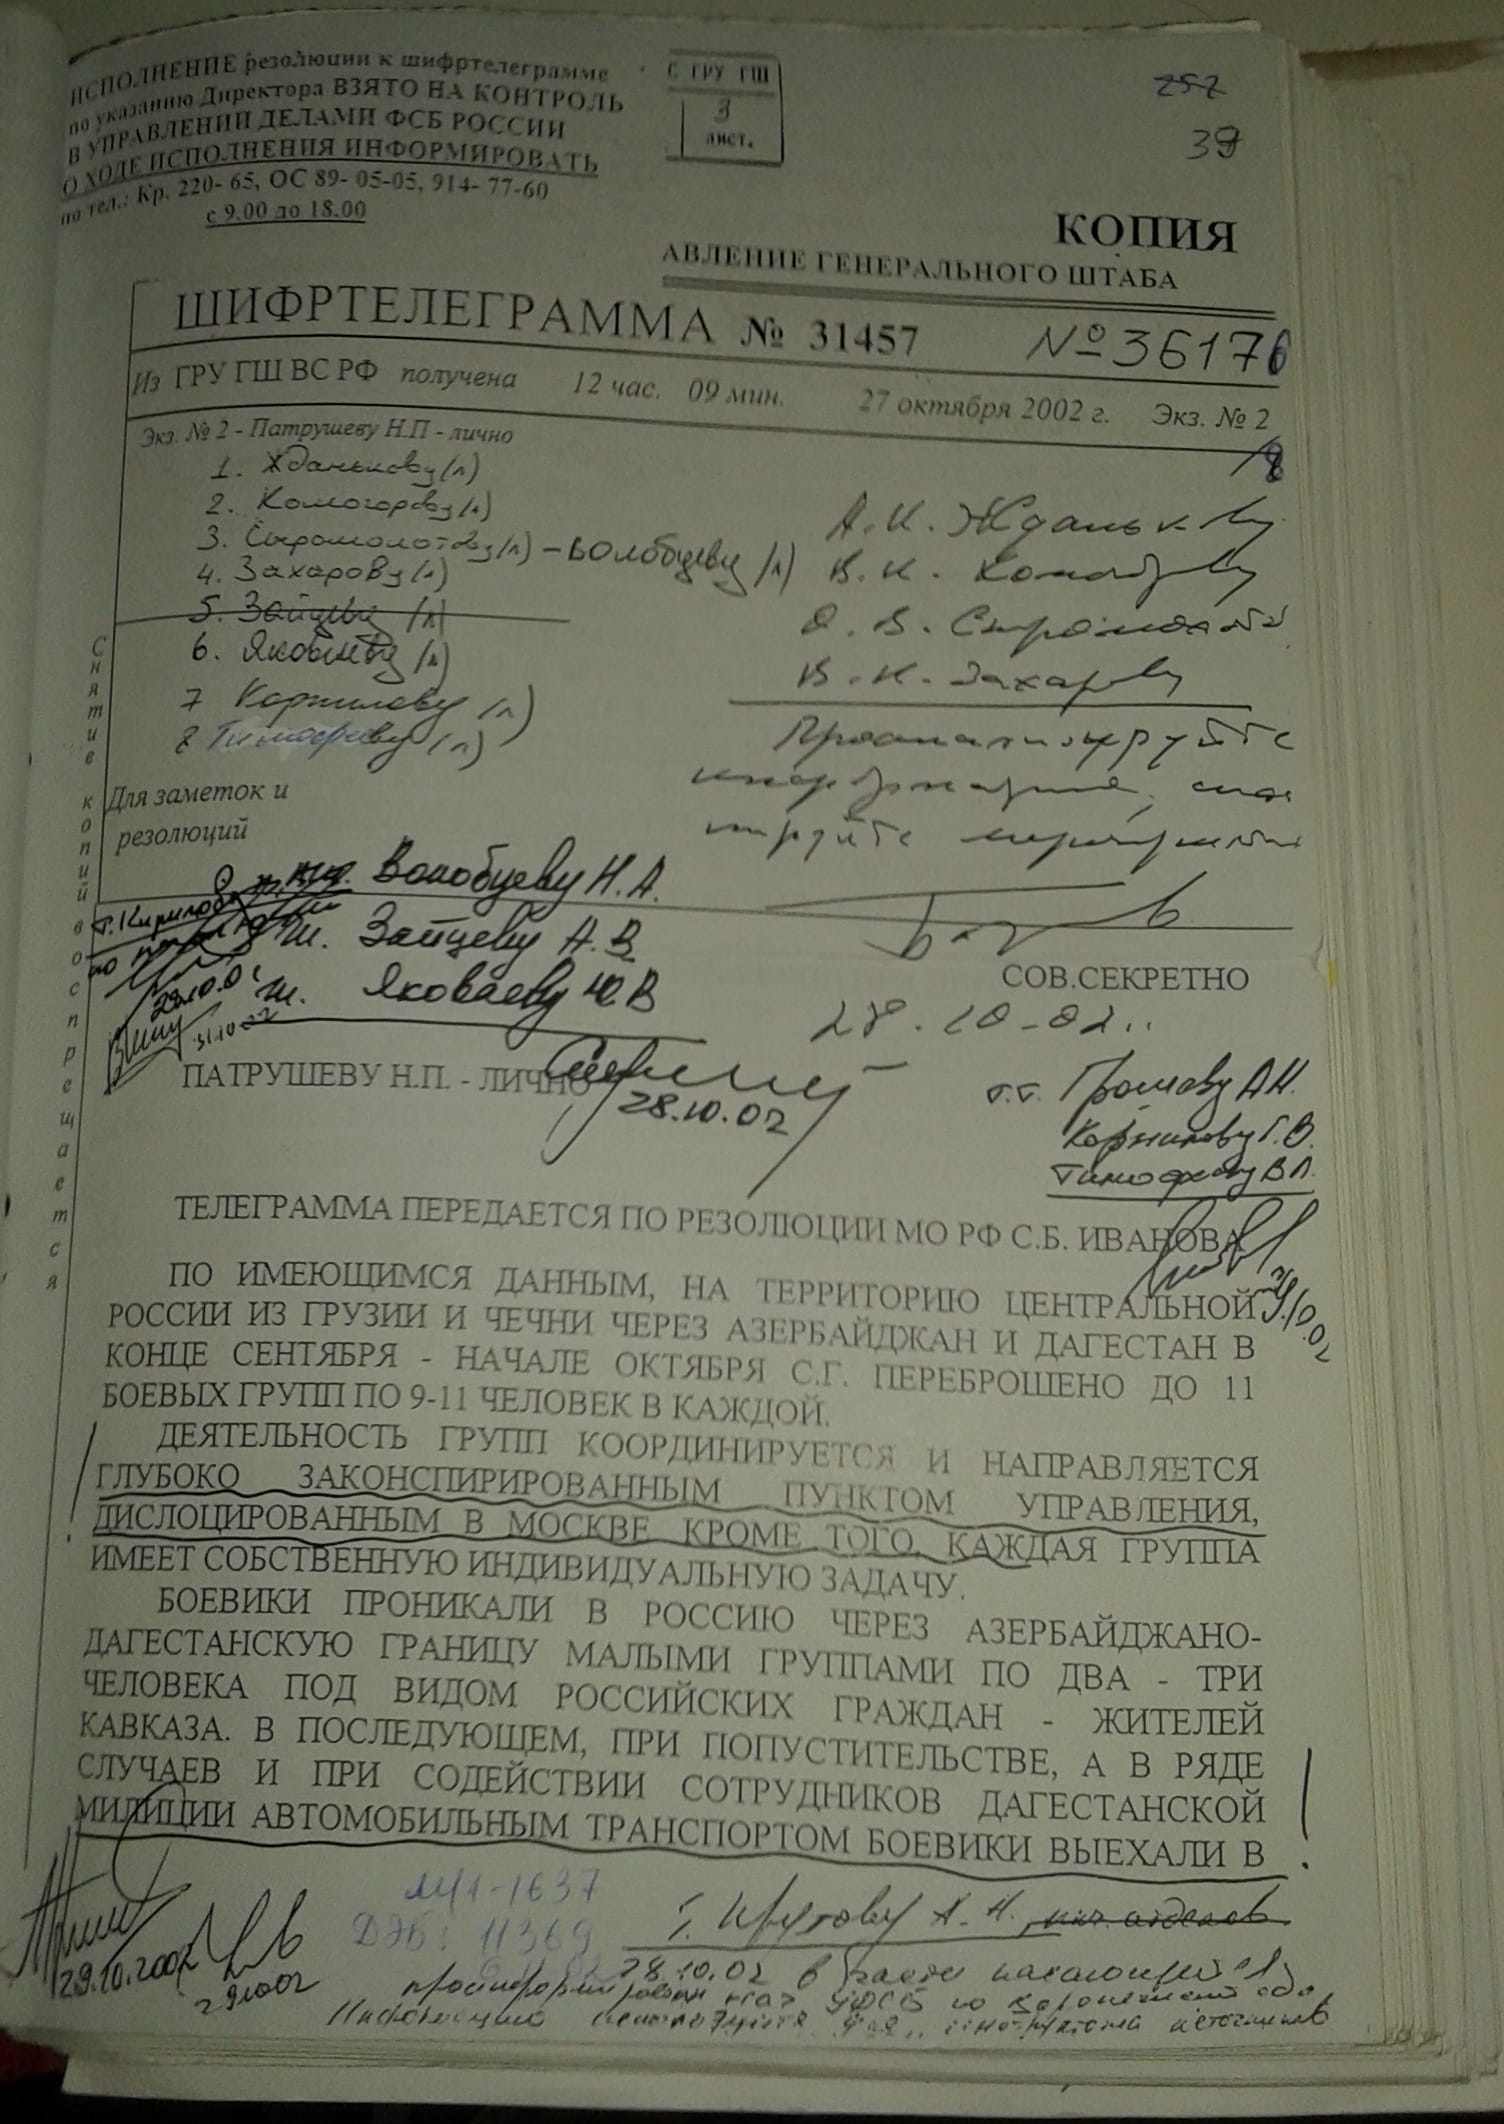 ИСПОЛНЕНИЕ резолюции к шифртелеграмме
по указанию Директора ВЗЯТО НА КОНТРОЛЬ
В УПРАВЛЕНИИ ДЕЛАМИ ФСБ РОССИИ
О ХОДЕ ИСПОЛНЕНИЯ ИНФОРМИРОВАТЬ
по тел.: Кр. 220- 65, ОС 89- 05-05, 914- 77-60
с 9.00 до 18.00
С ГРУ ГШ
3
лист.
257
39
КОПИЯ
АВЛЕНИЕ ГЕНЕРАЛЬНОГО ШТАБА
ШИФРТЕЛЕГРАММА № 31457 №36176
Из ГРУ ГШ ВС РФ получена 12 час. 09 мин. 27 октября 2002 г. Экз. № 2
Экз. № 2 - Патрушеву Н.П - лично
1. Жданькову (л)
2. Комогорову (л)
3. Сыромолотову (л) - Волобуеву (л)
4. Захарову (л)
5. Зайцеву (л)
6. Яковлеву (л)
7 Корнилову (л)
8 Тимофееву (л)
А.И. Жданькову
В.И. Комогорову
О.В. Сыромолотову
В.И. Захарову
Проанализируйте
информацию,
Снятие копий воспрещается
Для заметок и
резолюций
Волобуеву Н.А.
Зайцеву А.В
Яковлеву Ю.В
31.10.02
СОВ.СЕКРЕТНО
28.10.02..
ПАТРУШЕВУ Н.П. - ЛИЧНО
28.10.02
т.т. Громову А.Н.
Корнилову Г.В.
Тимофееву В Л.
ТЕЛЕГРАММА ПЕРЕДАЕТСЯ ПО РЕЗОЛЮЦИИ МО РФ С.Б. ИВАНОВА
ПО ИМЕЮЩИМСЯ ДАННЫМ, НА ТЕРРИТОРИЮ ЦЕНТРАЛЬНОЙ
РОССИИ ИЗ ГРУЗИИ И ЧЕЧНИ ЧЕРЕЗ АЗЕРБАЙДЖАН И ДАГЕСТАН В
КОНЦЕ СЕНТЯБРЯ - НАЧАЛЕ ОКТЯБРЯ С.Г. ПЕРЕБРОШЕНО ДО 11
БОЕВЫХ ГРУПП ПО 9-11 ЧЕЛОВЕК В КАЖДОЙ.
ДЕЯТЕЛЬНОСТЬ ГРУПП КООРДИНИРУЕТСЯ И НАПРАВЛЯЕТСЯ
ГЛУБОКО ЗАКОНСПИРИРОВАННЫМ ПУНКТОМ УПРАВЛЕНИЯ,
ДИСЛОЦИРОВАННЫМ В МОСКВЕ. КРОМЕ ТОГО, КАЖДАЯ ГРУППА
ИМЕЕТ СОБСТВЕННУЮ ИНДИВИДУАЛЬНУЮ ЗАДАЧУ.
БОЕВИКИ ПРОНИКАЛИ В РОССИЮ ЧЕРЕЗ АЗЕРБАЙДЖАНО-
ДАГЕСТАНСКУЮ ГРАНИЦУ МАЛЫМИ ГРУППАМИ ПО ДВА - ТРИ
ЧЕЛОВЕКА ПОД ВИДОМ РОССИЙСКИХ ГРАЖДАН - ЖИТЕЛЕЙ
КАВКАЗА. В ПОСЛЕДУЮЩЕМ, ПРИ ПОПУСТИТЕЛЬСТВЕ, А В РЯДЕ
СЛУЧАЕВ И ПРИ СОДЕЙСТВИИ СОТРУДНИКОВ ДАГЕСТАНСКОЙ
МИЛИЦИИ АВТОМОБИЛЬНЫМ ТРАНСПОРТОМ БОЕВИКИ ВЫЕХАЛИ В
29.10.2002
291002
1-1637
ДЭБ: 11369
т. Крутову А.Н.
28.10.02 в части касающейся